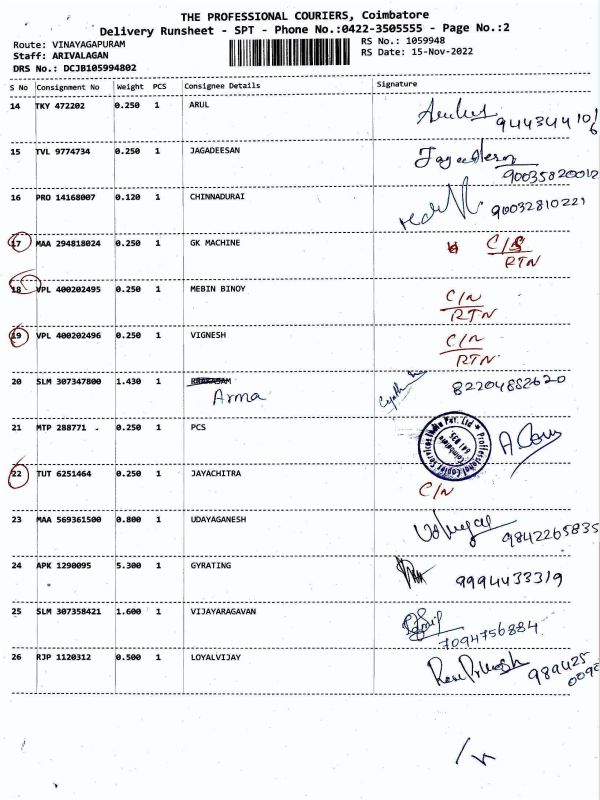 THE PROFESSIONAL COURIERS, Coimbatore
Delivery Runsheet - SPT - Phone No.:0422-3505555 - Page No.:2
Route: VINAYAGAPURAM
Staff: ARIVALAGAN
DRS No.: DCJB105994802
RS No.: 1059948
RS Date: 15-Nov-2022
S No Consignment No Weight PCS Consignee Details Signature
14 TKY 472202 0.250 1 ARUL 9443441016
15 TVL 9774734 0.250 1 JAGADEESAN 90035820012
16 PRO 14168007 0.120 1 CHINNADURAI 90032810221
17 MAA 294818024 0.250 1 GK MACHINE C/S
RTN
18 VPL 400202495 0.250 1 MEBIN BINOY C/N
RTN
19 VPL 400202496 0.250 1 VIGNESH C/N
RTN
20 SLM 307347800 1.430 1 82204882620
Arma
21 MTP 288771 0.250 1 PCS
22 TUT 6251464 0.250 1 JAYACHITRA
C/N
23 MAA 569361500 0.800 1 UDAYAGANESH 9842265835
24 APK 1290095 5.300 1 GYRATING 9994433319
25 SLM 307358421 1.600 1 VIJAYARAGAVAN
7094756884
26 RJP 1120312 0.500 1 LOYALVIJAY 989425